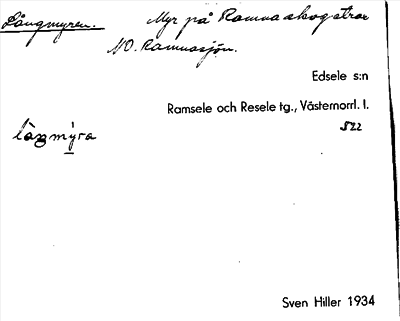 Långmyren. Myr på Ramnaskogstrax
NO. Ramnasjön.
Edsele s:n
Ramsele och Resele tg., Västernorrl. l.
522
Sven Hiller 1934